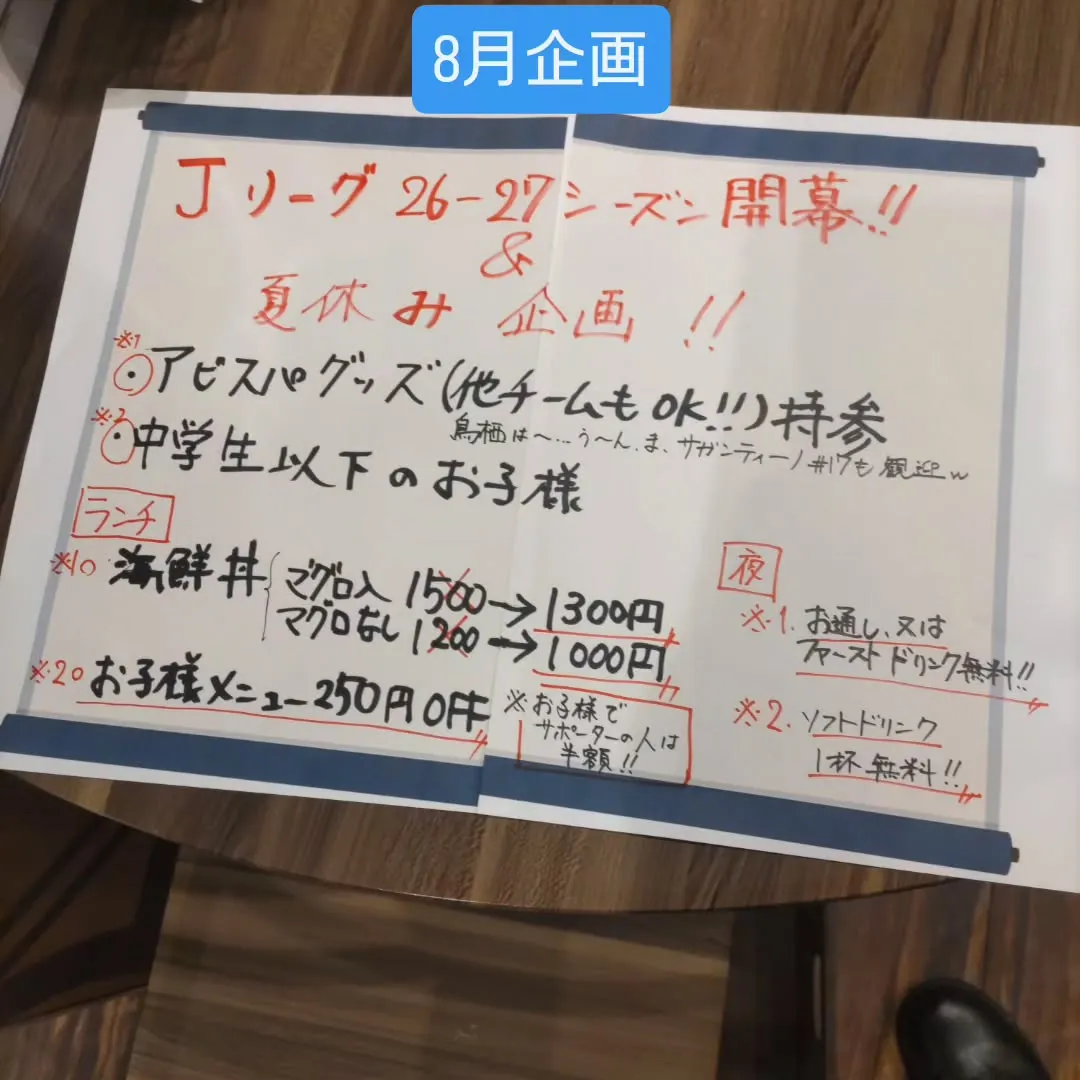 8月企画
Jリーグ 26-27シーズン開幕!!
&
夏休み 企画 !!
※1
・アビスパグッズ(他チームもOK!!)持参
鳥栖は〜…う〜ん、ま、サガンティーノ#17も観迎w
※2
・中学生以下のお子様
ランチ
※1○ 海鮮丼 マグロ入 1500→1300円
マグロなし 1200→1000円
※2○ お子様メニュー250円OFF
※お子様で
サポーターの人は
半額!!
夜
※1. お通し、又は
ファーストドリンク無料!!
※2. ソフトドリンク
1杯無料!!